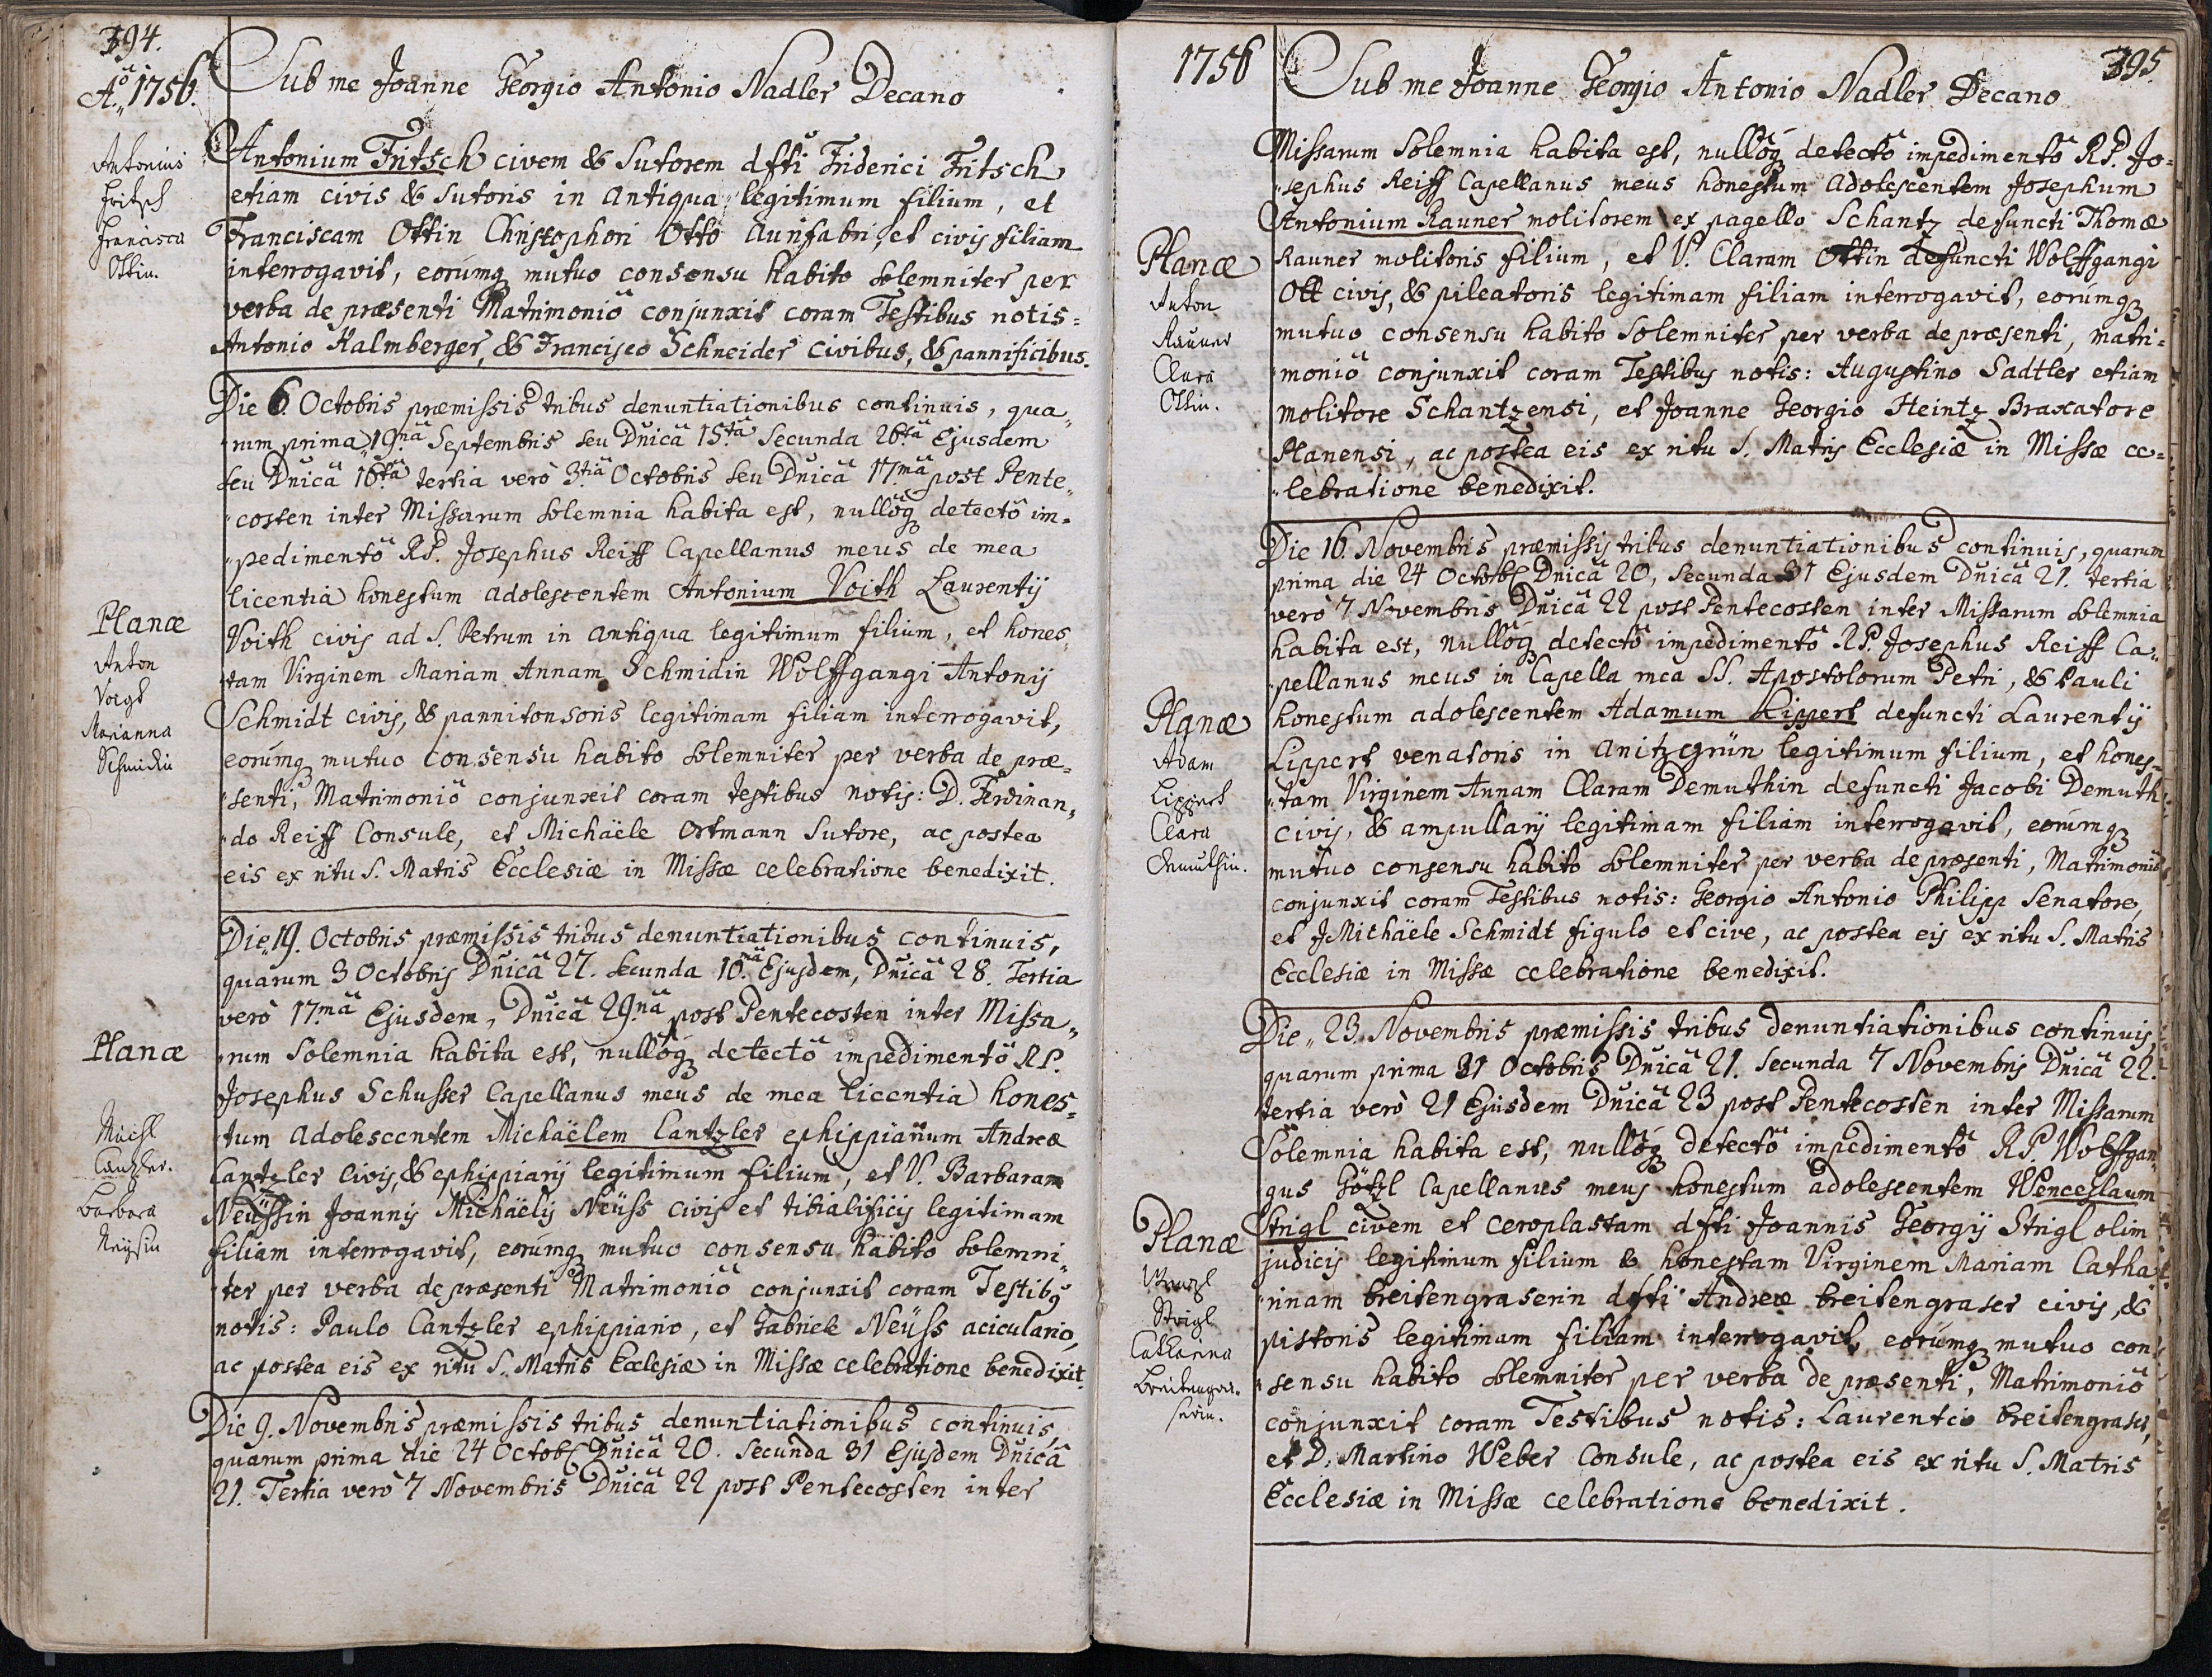 394.
Aõ. 1756.
Sub me Joanne Georgio Antonio Nadler Decano
Antonius
Fritsch
Francisca
Ottin.
Antonium Fritsch civem & Sutorem dfti Friderici Fritsch
etiam civis & Sutoris in Antiqua legitimum filium, et
Franciscam Ottin Christophori Otto Aurifabri, et civis filiam
interrogavit, eorúmq mutuo consensu habito solemniter per
verba de præsenti Matrimoniõ conjunxit coram Testibus notis=
Antonio Kalmberger, & Francisco Schneider civibus, & pannificibus.
Die 6. Octobris præmissis tribus denuntiationibus continuis, qua„
„rum prima 19.nã Septembris seu Dnicã 15.tã Secunda 26tã Ejusdem
seu Dnicã 16tã tertia verò 3.tiã Octobris seu Dnicã 17.mã post Pente„
„costen inter Missarum solemnia habita est, nullõq detectõ im„
„pedimentõ RP. Josephus Reiff Capellanus meus de mea
licentia honestum adolescentem Antonium Voith Laurentij
Planæ
Anton
Voigt
Marianna
Schmidin
Voith civis ad S. Petrum in antiqua legitimum filium, et hones„
„tam Virginem Mariam Annam Schmidin Wolffgangi Antonij
Schmidt civis, & pannitonsoris legitimam filiam interrogavit,
eorúmq mutuo consensu habito solemniter per verba de præ„
„senti, Matrimoniõ conjunxit coram testibus notis: D. Ferdinan„
„do Reiff Consule, et Michaële Ortmann Sutore, ac postea
eis ex ritu S. Matris Ecclesiæ in Missæ celebratione benedixit.
Die 19. Octobris præmissis tribus denuntiationibus continuis,
quarum 3 Octobris Dnicã 27. secunda 10.mã Ejusdem, Dnicã 28. Tertia
verò 17.mã Ejusdem, Dnicã 29.nã post Pentecosten inter Missa„
Planæ
Michl
Cantzler.
Barbara
Neysin
„rum Solemnia habita est, nullõq detectõ impedimentõ RP.
Josephus Schusser Capellanus meus de mea licentia hones„
„tum adolescentem Michaëlem Cantzler ephippiarium Andreæ
Cantzler civis, & ephippiarij legitimum filium, et V. Barbaram
Neüssin Joannis Michaëlis Neüss civis et tibialificis legitimam
filiam interrogavit, eorúmq mutuo consensu habito solemni„
„ter per verba de præsenti Matrimoniõ conjunxit coram Testib9
notis: Paulo Cantzler ephippiario, et Gabriele Neüss aciculario,
ac postea eis ex ritu S. Matris Ecclesiæ in Missæ celebratione benedixit.
Die 9. Novembris præmissis tribus denuntiationibus continuis,
quarum prima die 24 Octob. Dnicã 20. secunda 31 Ejusdem Dnicã
21. Tertia verò 7 Novembris Dnicã 22 post Pentecosten inter
1756
Sub me Joanne Georgio Antonio Nadler Decano
395.
Missarum Solemnia habita est, nullõq detectõ impedimentõ RP. Jo=
„sephus Reiff Capellanus meus honestum adolescentem Josephum
Antonium Rauner molitorem ex pagello Schantz defuncti Thomæ
Planæ
Anton
Rauner
Clara
Ottin.
Rauner molitoris filium, et V. Claram Ottin defuncti Wolffgangi
Ott civis, & pileatoris legitimam filiam interrogavit, eorúmq
mutuo consensu habito Solemniter per verba de præsenti, matri=
„moniõ conjunxit coram Testibus notis: Augustino Sadtler etiam
molitore Schantzensi, et Joanne Georgio Heintz Braxatore
Planensi, ac postea eis ex ritu S. Matris Ecclesiæ in Missæ ce=
„lebratione benedixit.
Die 16. Novembris præmissis tribus denuntiationibus continuis, quarum
prima die 24 Octob. Dnicã 20, secunda 31 Ejusdem Dnicã 21. tertia
verò 7 Novembris Dnicã 22 post Pentecosten inter Missarum solemnia
habita est, nullõq detectõ impedimentõ RP. Josephus Reiff Ca„
„pellanus meus in Capella mea SS. Apostolorum Petri, & Pauli
Planæ
Adam
Lippert
Clara
Demuthin.
honestum adolescentem Adamum Lippert defuncti Laurentij
Lippert venatoris in Anitzegrün legitimum filium, et hones=
„tam Virginem Annam Claram Demuthin defuncti Jacobi Demuth
civis, & ampullarij legitimam filiam interrogavit, eorúmq
mutuo consensu habito solemniter per verba de præsenti, Matrimoniõ
conjunxit coram Testibus notis: Georgio Antonio Philipp Senatore,
et J Michaële Schmidt figulo et cive, ac postea eis ex ritu S. Matris
Ecclesiæ in Missæ celebratione benedixit.
Die „ 23. Novembris præmissis tribus denuntiationibus continuis,
quarum prima 31 Octobris Dnicã 21. secunda 7 Novembris Dnicã 22.
tertia verò 21 Ejusdem Dnicã 23 post Pentecosten inter Missarum
Solemnia habita est, nullõq detectõ impedimentõ RP. Wolffgan„
gus Götzl Capellanus meus honestum adolescentem Wenceslaum
Planæ
Wenzl
Strigl
Catharina
Breitengra„
serin.
Strigl civem et ceroplastam dfti Joannis Georgij Strigl olim
judicis legitimum filium & honestam Virginem Mariam Catha„
„rinam breitengraserin dfti Andreæ breitengraser civis, &
pistoris legitimam filiam interrogavit, eorúmq mutuo con„
„sensu habito solemniter per verba de præsenti, Matrimoniõ
conjunxit coram Testibus notis: Laurentio breitengraser,
et D. Martino Weber Consule, ac postea eis ex ritu S. Matris
Ecclesiæ in Missæ celebratione benedixit.